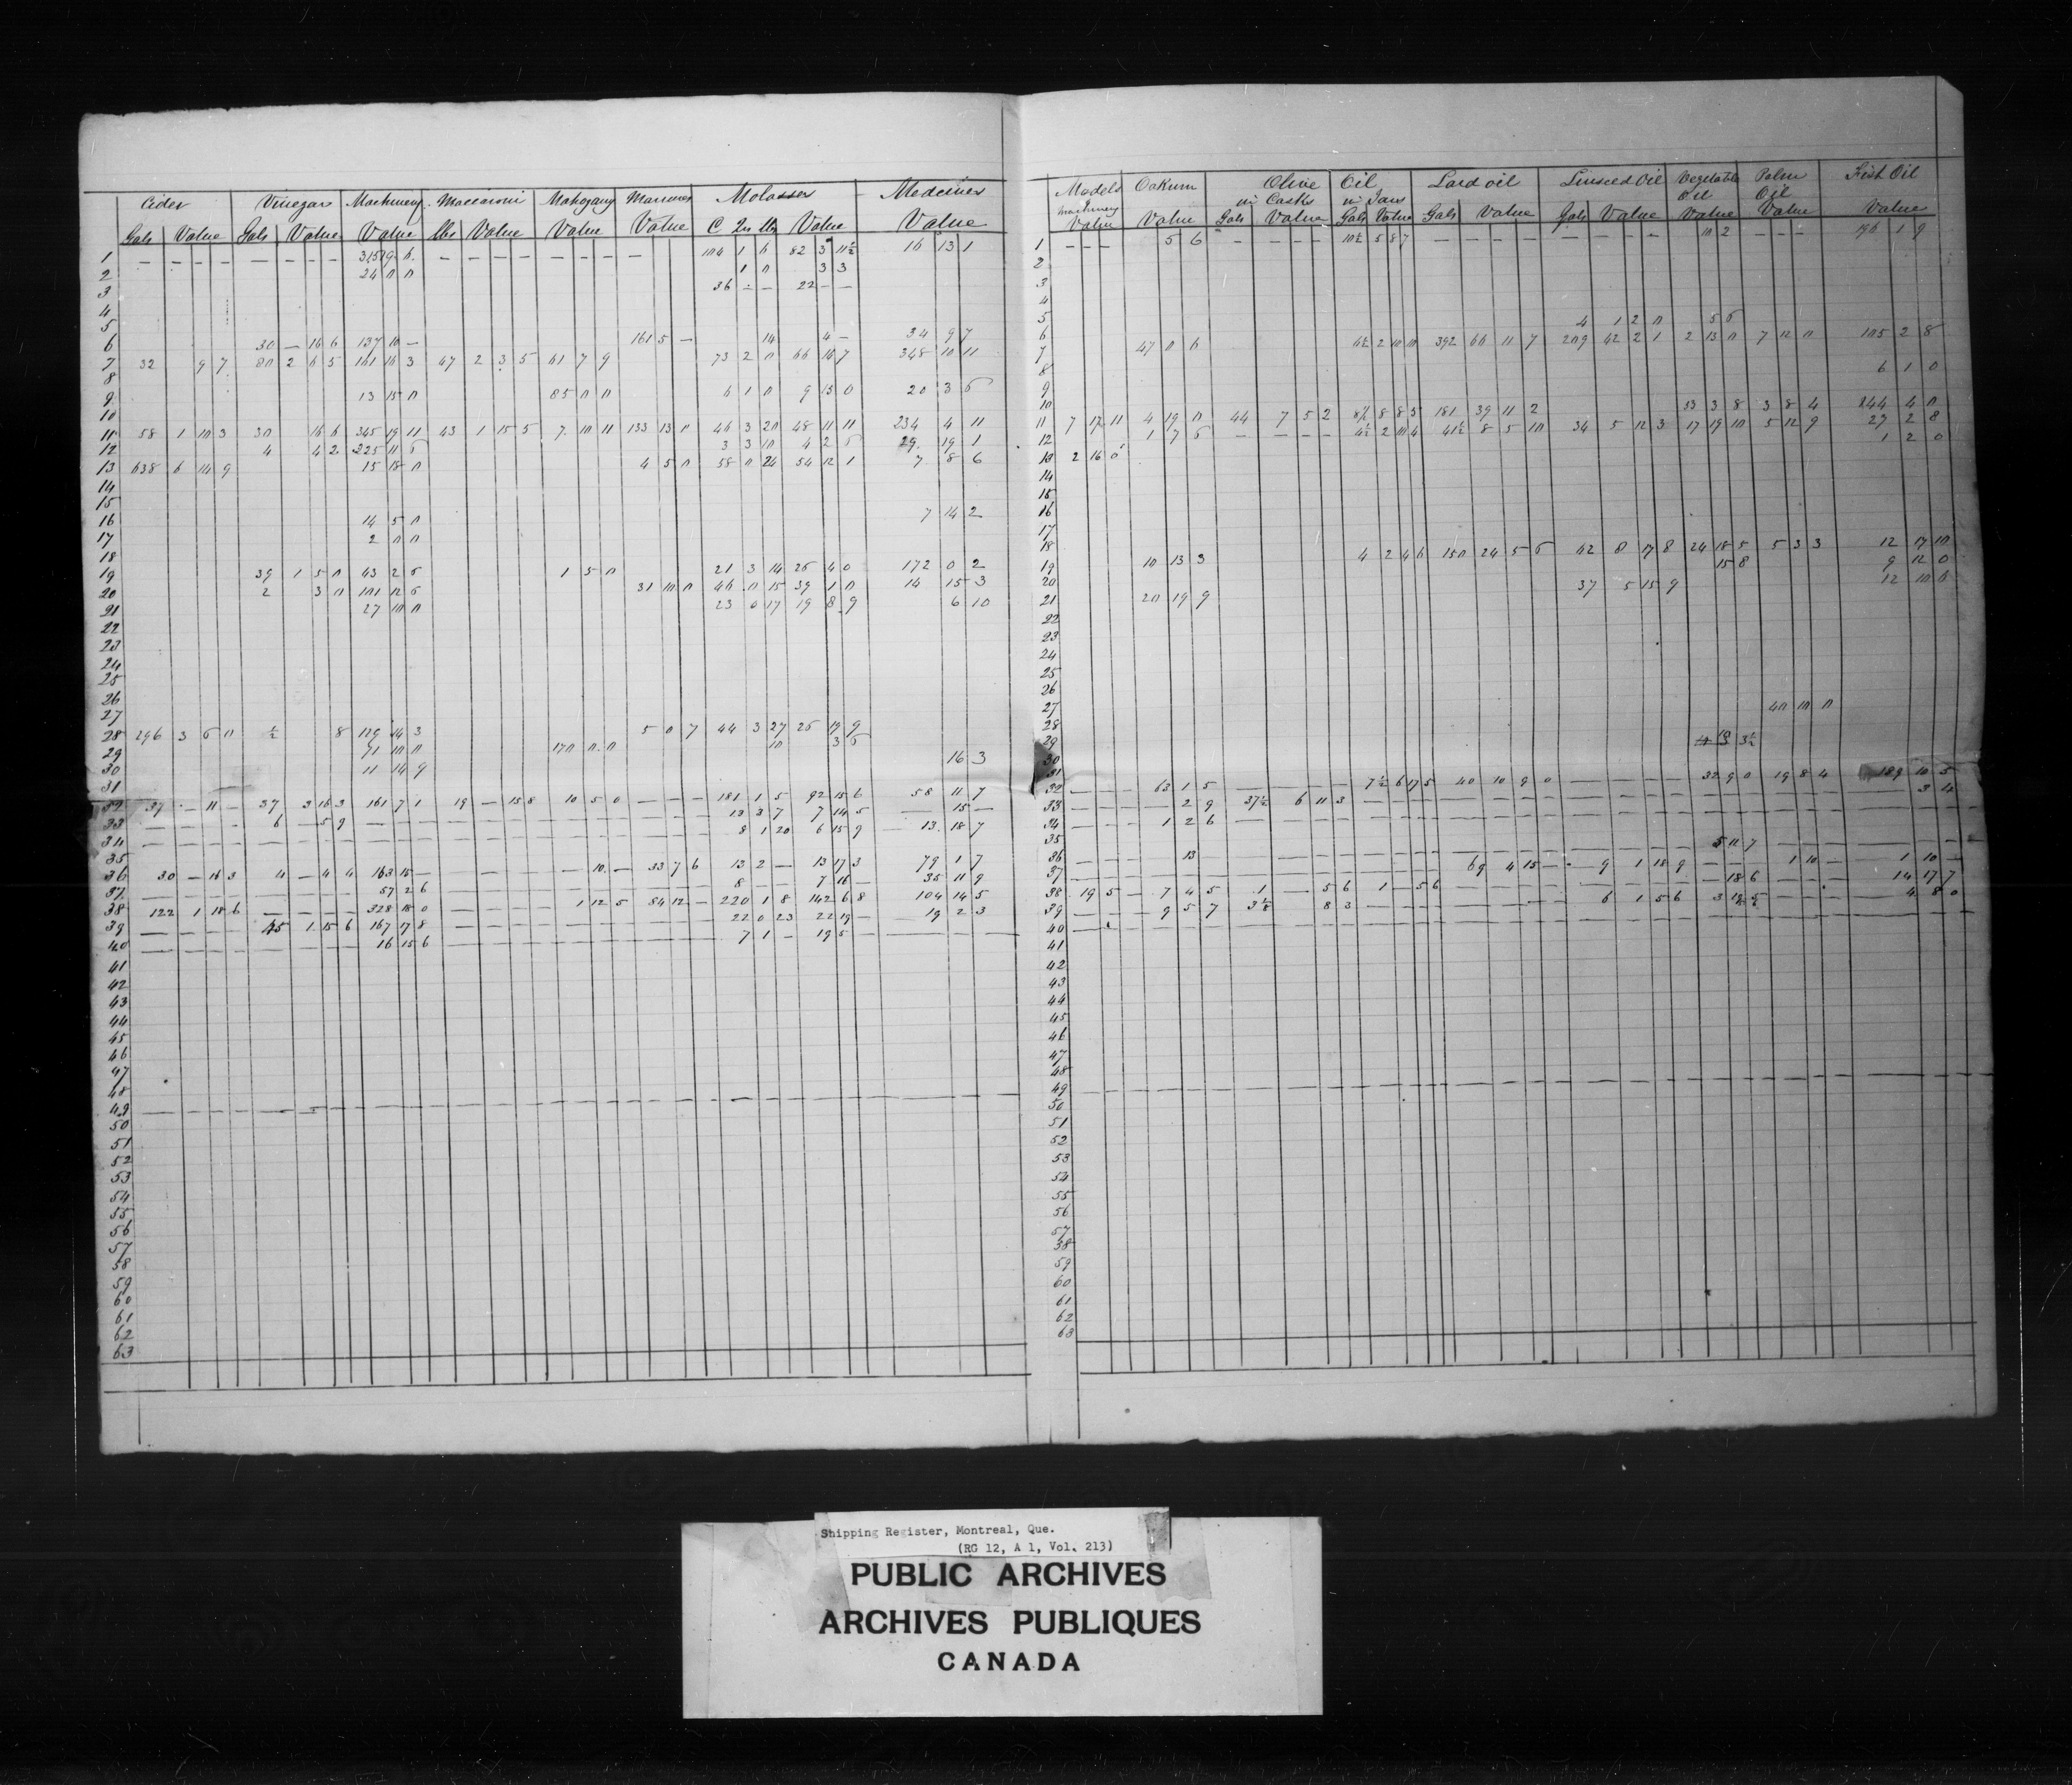 Cider Vinegar Machinery Maccaroni Mahogany Manures Molasses Medcines
Gals Value Gals Value Value lbs Value Value Value C Qrs lbs Value Value
1 — — — — — — — — 315 19 6 — — — — — — — — 104 1 6 82 3 11½ 16 13 1
2 24 0 0 1 0 3 3
3 36 — — 22 — —
4
5
6 30 — 16 6 137 10 — 161 5 — 14 4 — 34 9 7
7 32 9 7 80 2 6 5 161 16 3 47 2 3 5 61 7 9 73 2 0 66 16 7 348 10 11
8
9 13 15 0 85 0 0 6 1 0 9 15 0 20 3 6
10
11 58 1 10 3 30 16 6 345 19 11 43 1 15 5 7 10 11 133 13 0 46 3 20 48 11 11 234 4 11
12 4 4 2 225 11 6 3 3 10 4 2 6 29 19 1
13 638 6 14 9 15 18 0 4 5 0 58 0 24 54 12 1 7 8 6
14
15
16 14 5 0 7 14 2
17 2 0 0
18
19 39 1 5 0 43 2 6 1 5 0 21 3 14 26 4 0 172 0 2
20 2 3 0 101 12 6 31 10 0 46 0 15 39 1 0 14 15 3
21 27 10 0 23 6 17 19 8 9 6 10
22
23
24
25
26
27
28 296 3 6 0 ½ 8 129 14 3 5 0 7 44 3 27 26 19 9
29 71 10 0 170 0 0 10 3 6
30 11 14 9 16 3
31
32 37 — 11 — 37 3 16 3 161 7 1 19 — 15 8 10 5 0 — — — 181 1 5 92 15 6 58 11 7
33 — — — — 6 — 5 9 — — — 13 3 7 7 14 5 — 15 —
34 — — — — 8 1 20 6 15 9 — 13 18 7
35
36 30 — 16 3 4 — 4 4 163 15 — — — — — — 10 — 33 7 6 13 2 — 13 17 3 79 1 7
37 — — — — 57 2 6 — — — 8 — — 7 16 — 35 11 9
38 122 1 18 6 — — — — 328 18 0 — — — — 1 12 5 84 12 — 220 1 8 142 6 8 104 14 5
39 — — — — 45 1 15 6 167 17 8 — — — 22 0 23 22 19 — 19 2 3
40 — — — — 16 15 6 — — — 7 1 — 19 5 — — —
41
42
43
44
45
46
47
48
49 — — — —
50
51
52
53
54
55
56
57
58
59
60
61
62
63
Models Oakum Olive Oil Lard oil Linseed Oil Vegetable Palm Fish Oil
Machinery in Casks in Jars Oil Oil
Value Value Gals Value Gals Value Gals Value Gals Value Value Value Value
1 — — — 5 6 — — — — 10½ 5 8 7 — — — — — — — — 10 2 — — — 196 1 9
2
3
4
5 4 1 2 0 5 6
6
7 47 0 6 6½ 2 10 0 392 66 11 7 209 42 2 1 2 13 0 7 12 0 105 2 8
8
9 6 1 0
10
11 7 17 11 4 19 0 44 7 5 2 8½ 8 8 5 181 39 11 2 33 3 8 3 8 4 244 4 0
12 1 7 6 — — — — 4½ 2 10 4 41½ 8 5 10 34 5 12 3 17 19 10 5 12 9 27 2 8
13 2 16 0 1 2 0
14
15
16
17
18
19 10 13 3 4 2 4 6 150 24 5 6 42 8 17 8 24 18 5 5 3 3 12 17 10
20 15 8 9 12 0
21 20 19 9 37 5 15 9 12 10 6
22
23
24
25
26
27
28 40 10 0
29
30 3½
31
32 — — — 63 1 5 — — — — 7½ 6 17 5 40 10 9 0 — — — — 32 9 0 19 8 4 189 10 5
33 — — — 2 9 37½ 6 11 3 — — — 3 4
34 — — — 1 2 6 — — —
35
36 — — — 13 — — — 5 11 7 — — —
37 — — — 69 4 15 — 9 1 18 9 — — — 1 10 — 1 10 —
38 19 5 — 7 4 5 1 — 5 6 1 — 5 6 — — — 18 6 — — — 14 17 7
39 — — — 9 5 7 3⅛ 8 3 — — — 6 1 5 6 4 8 0
40 — — —
41
42
43
44
45
46
47
48
49 — — — —
50
51
52
53
54
55
56
57
58
59
60
61
62
63
Shipping Register, Montreal, Que.
(RG 12, A 1, Vol. 213)
PUBLIC ARCHIVES
ARCHIVES PUBLIQUES
CANADA